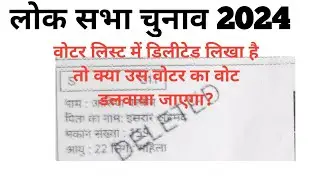 लोक सभा चुनाव 2024
वोटर लिस्ट में डिलीटेड लिखा है
तो क्या उस वोटर का वोट
डलवाया जाएगा?
नाम :
पिता का नाम: इसरार
मकान संख्या :
आयु : 22 लिंग: महिला
DELETED